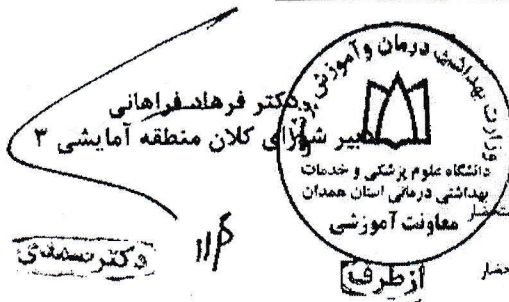 دکتر فرهاد فراهانی
دبیر شورای کلان منطقه آمایشی ۳
وزارت بهداشت درمان و آموزش
دانشگاه علوم پزشکی و خدمات
بهداشتی درمانی استان همدان
معاونت آموزشی
از طرف
دکتر